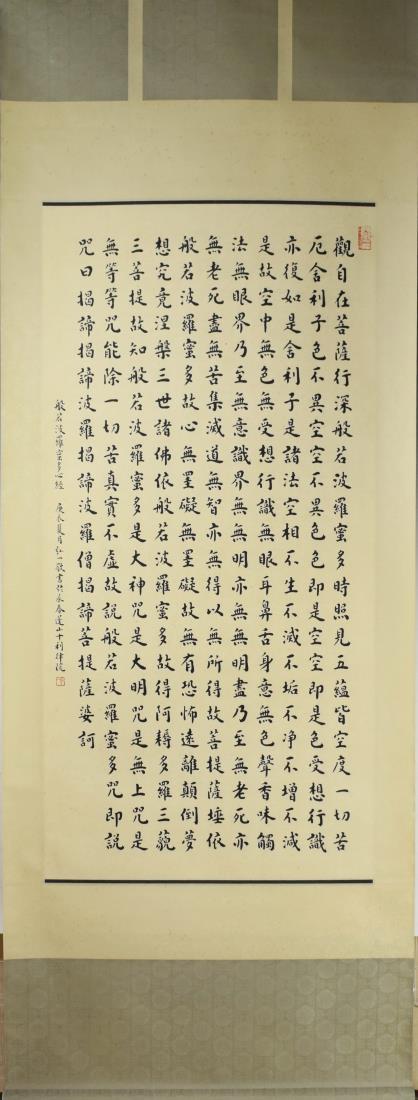 觀自在菩薩行深般若波羅蜜多時照見五蘊皆空度一切苦
厄舍利子色不異空空不異色色即是空空即是色受想行識
亦復如是舍利子是諸法空相不生不滅不垢不净不增不減
是故空中無色無受想行識無眼耳鼻舌身意無色聲香味觸
法無眼界乃至無意識界無無明亦無無明盡乃至無老死亦
無老死盡無苦集滅道無智亦無得以無所得故菩提薩埵依
般若波羅蜜多故心無罣礙無罣礙故無有恐怖遠離顛倒夢
想究竟涅槃三世諸佛依般若波羅蜜多故得阿耨多羅三藐
三菩提故知般若波羅蜜多是大神咒是大明咒是無上咒是
無等等咒能除一切苦真實不虛故說般若波羅蜜多咒即說
咒曰揭諦揭諦波羅揭諦波羅僧揭諦菩提薩婆訶
般若波羅蜜多心經 庚辰夏月弘一敬書於永春蓬山十利律院